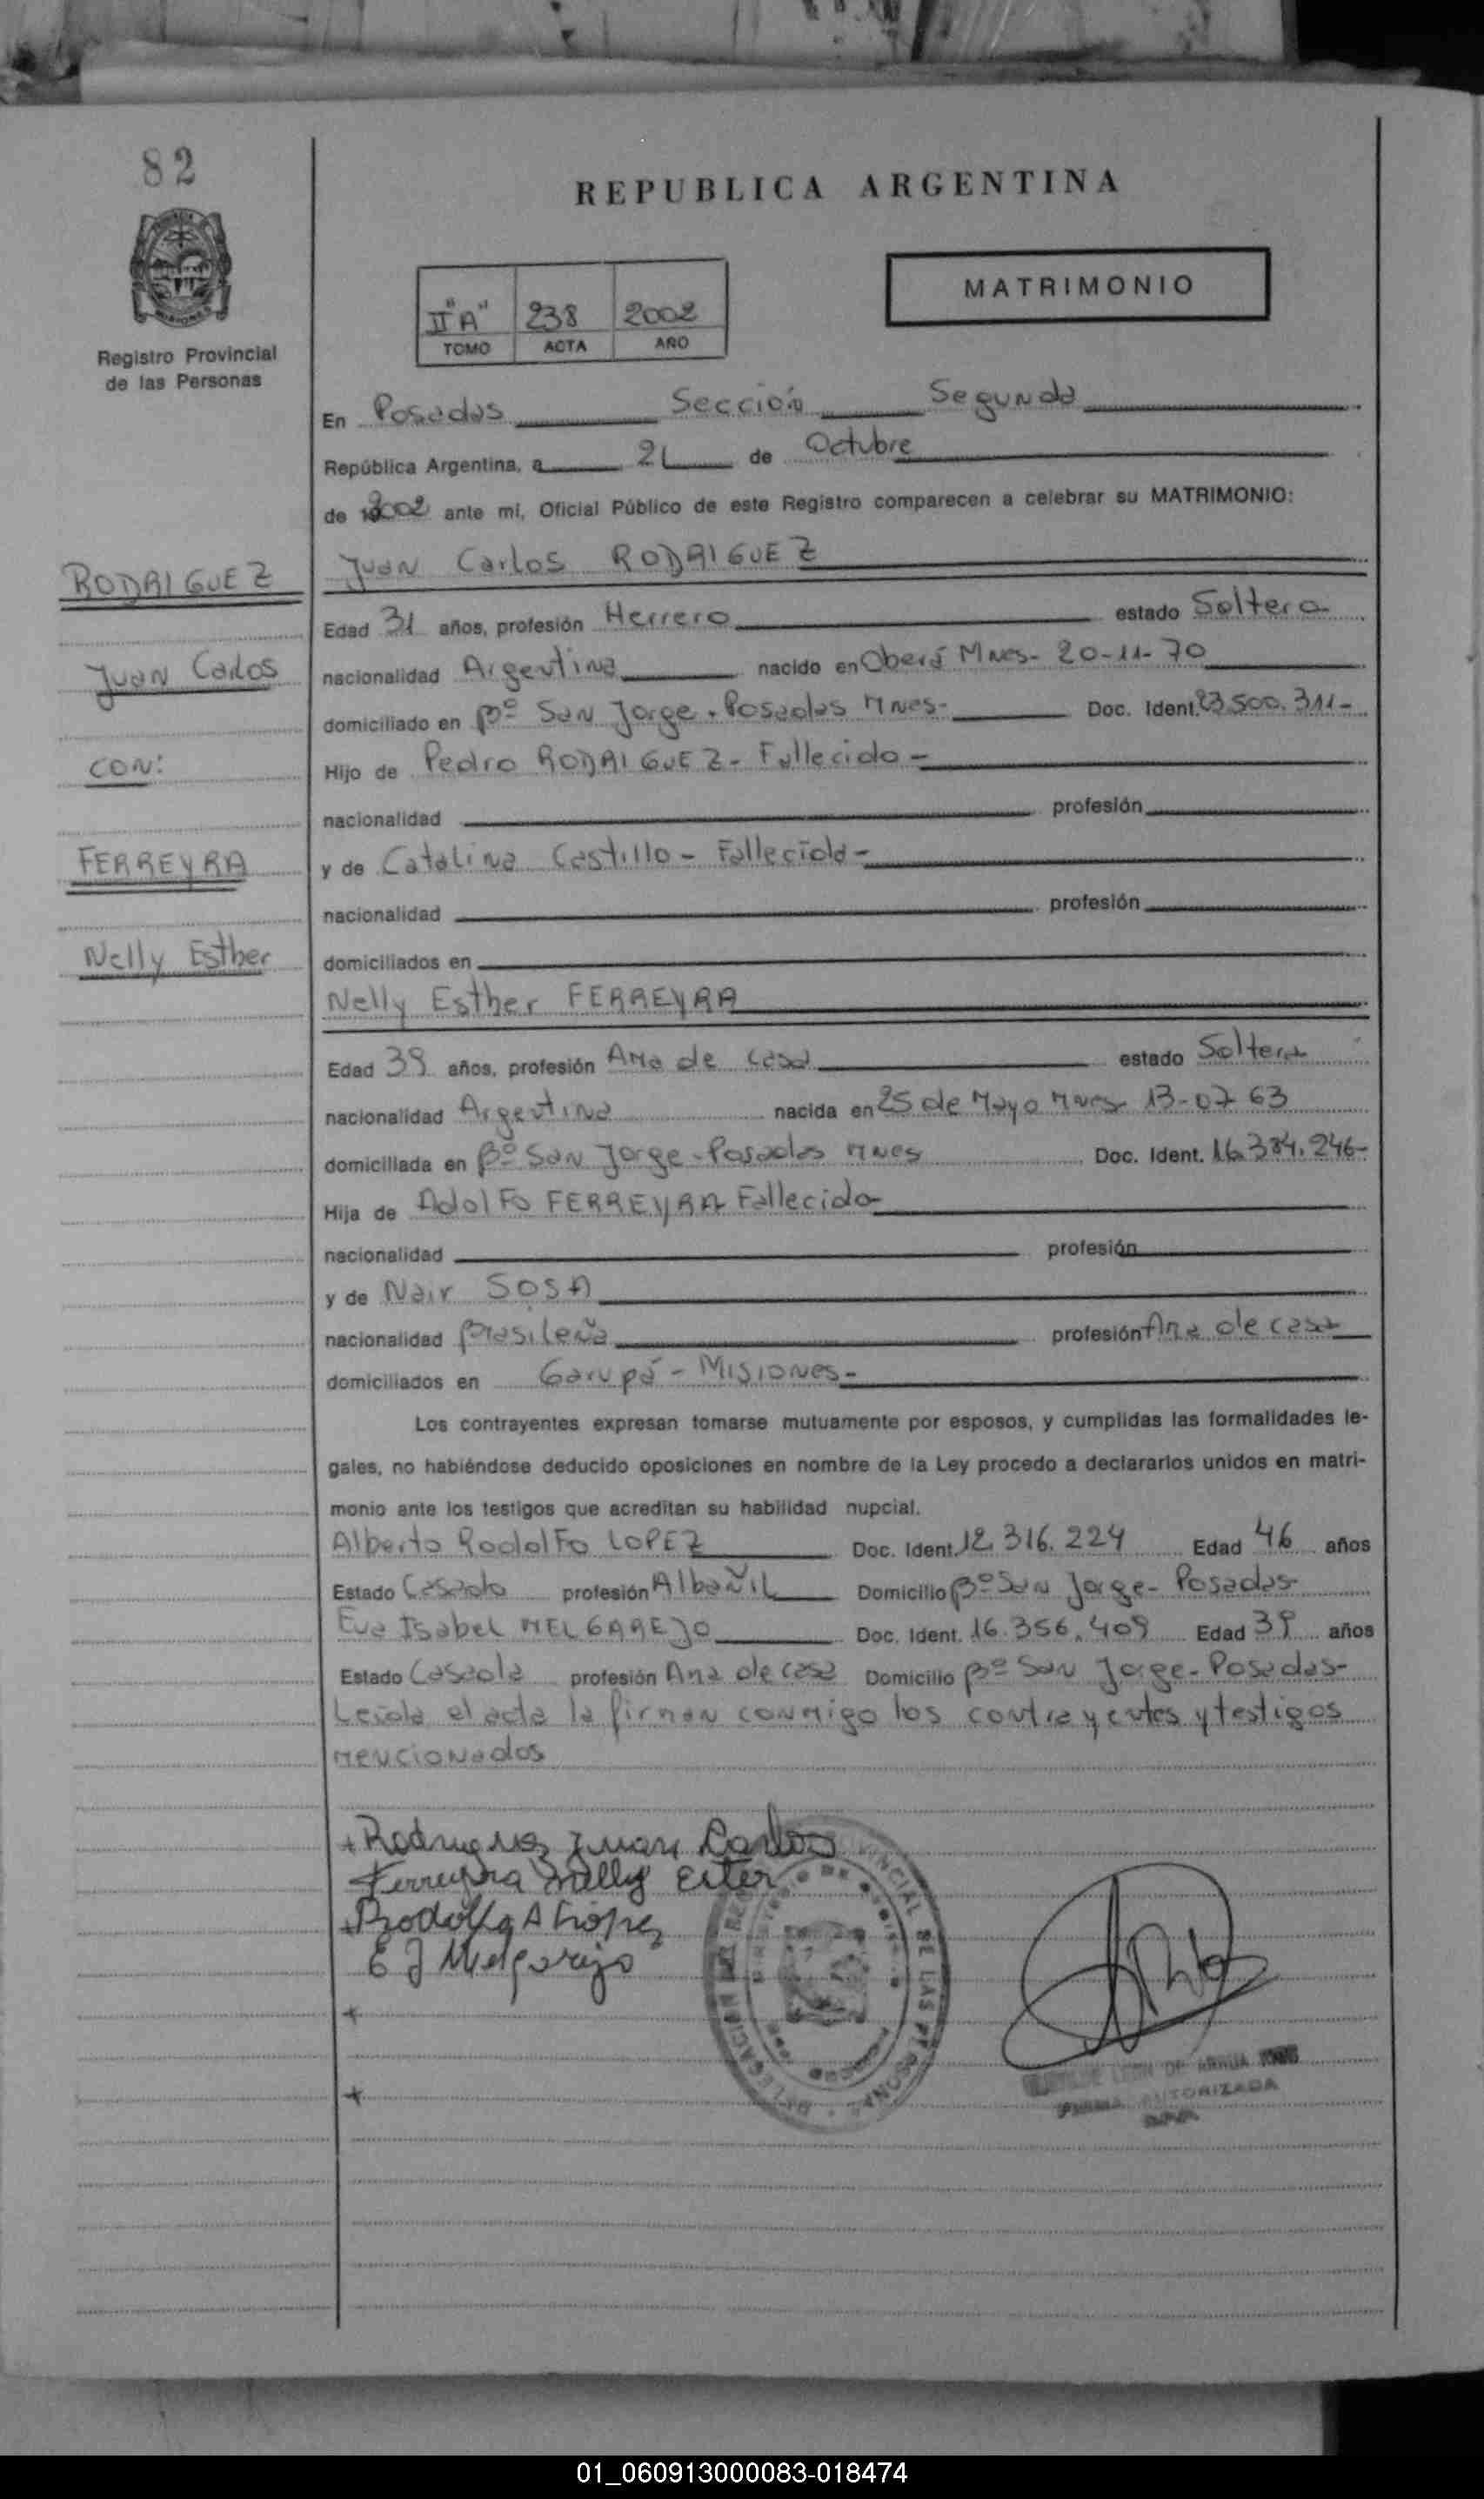 82
REPUBLICA ARGENTINA
MATRIMONIO
II "A" 238 2002
TOMO ACTA AÑO
Registro Provincial
de las Personas
En Posadas Sección Segunda
República Argentina, a 21 de Octubre
de 2002 ante mi, Oficial Público de este Registro comparecen a celebrar su MATRIMONIO:
RODRIGUEZ
Juan Carlos RODRIGUEZ
Edad 31 años, profesión Herrero estado Soltero
Juan Carlos
nacionalidad Argentina nacido en Oberá Mnes- 20-11-70
domiciliado en Bº San Jorge - Posadas Mnes- Doc. Ident. 23.500.311-
CON:
Hijo de Pedro RODRIGUEZ - Fallecido -
nacionalidad profesión
FERREYRA
y de Catalina Castillo - Fallecida -
nacionalidad profesión
Nelly Esther
domiciliados en
Nelly Esther FERREYRA
Edad 39 años, profesión Ama de casa estado Soltera
nacionalidad Argentina nacida en 25 de Mayo Mnes- 13-07-63
domiciliada en Bº San Jorge - Posadas Mnes Doc. Ident. 16.384.246-
Hija de Adolfo FERREYRA Fallecido
nacionalidad profesión
y de Nair SOSA
nacionalidad Brasileña profesión Ama de casa
domiciliados en Garupá - Misiones -
Los contrayentes expresan tomarse mutuamente por esposos, y cumplidas las formalidades le-
gales, no habiéndose deducido oposiciones en nombre de la Ley procedo a declararlos unidos en matri-
monio ante los testigos que acreditan su habilidad nupcial.
Alberto Rodolfo LOPEZ Doc. Ident. 12.316.224 Edad 46 años
Estado Casado profesión Albañil Domicilio Bº San Jorge - Posadas-
Eva Isabel MELGAREJO Doc. Ident. 16.356.409 Edad 39 años
Estado Casada profesión Ama de casa Domicilio Bº San Jorge - Posadas-
Leida el acta la firman conmigo los contrayentes y testigos
mencionados
+ Rodriguez Juan Carlos
Ferreyra Nelly Ester
+ Rodolfo A Lopez
E I Melgarejo
+
+
FIRMA AUTORIZADA
01_060913000083-018474